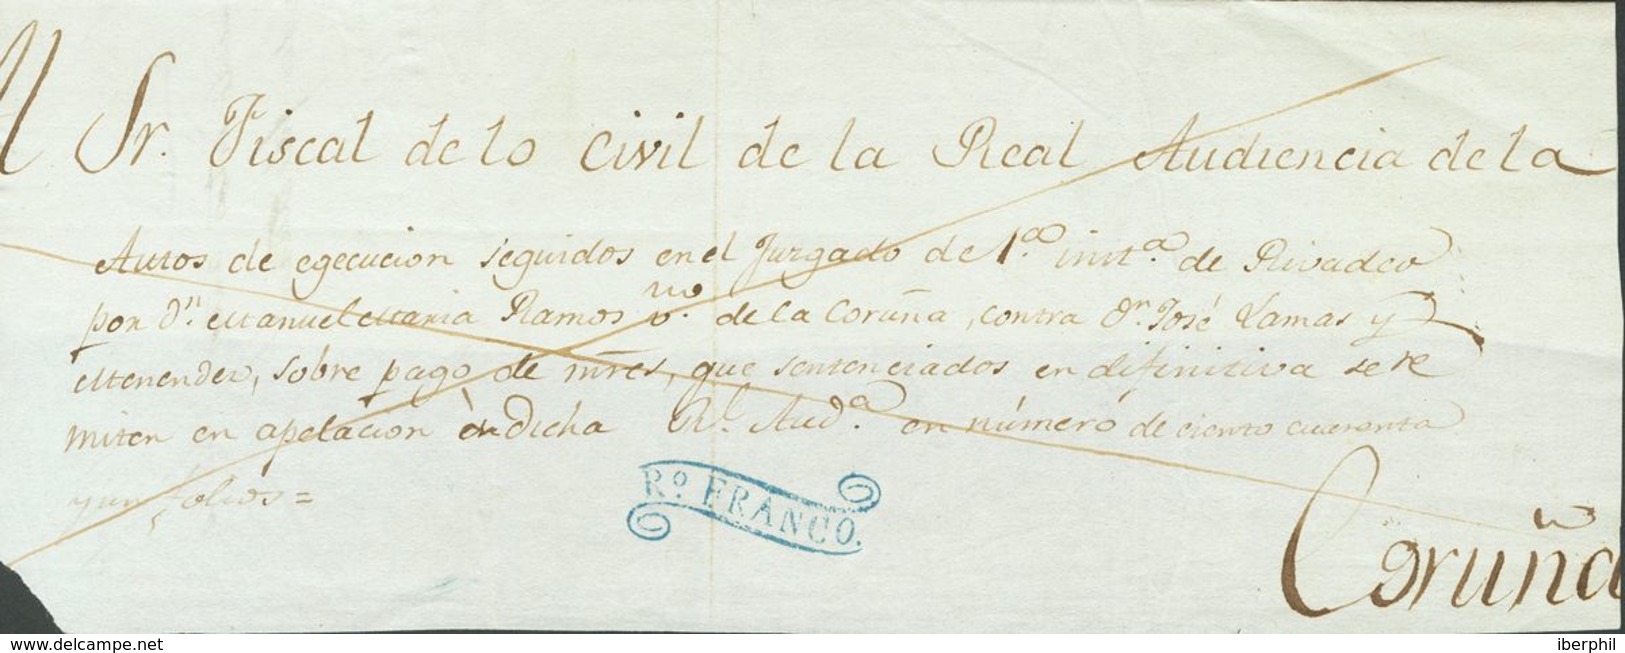 Al Sr. Fiscal de lo Civil de la Real Audiencia de la
Autos de egecucion seguidos en el Juzgado de 1.ª inst.ª de Rivadeo
por d.n Manuel Maria Ramos v.no de la Coruña, contra d.n José Lamas y
Menendez, sobre pago de mrẽs, que sentenciados en difinitiva se re
miten en apelacion à dicha Rl. Aud.ª en número de ciento cuarenta
y un folios =
Rº FRANCO.
Coruña
delcampe.net
iberphil